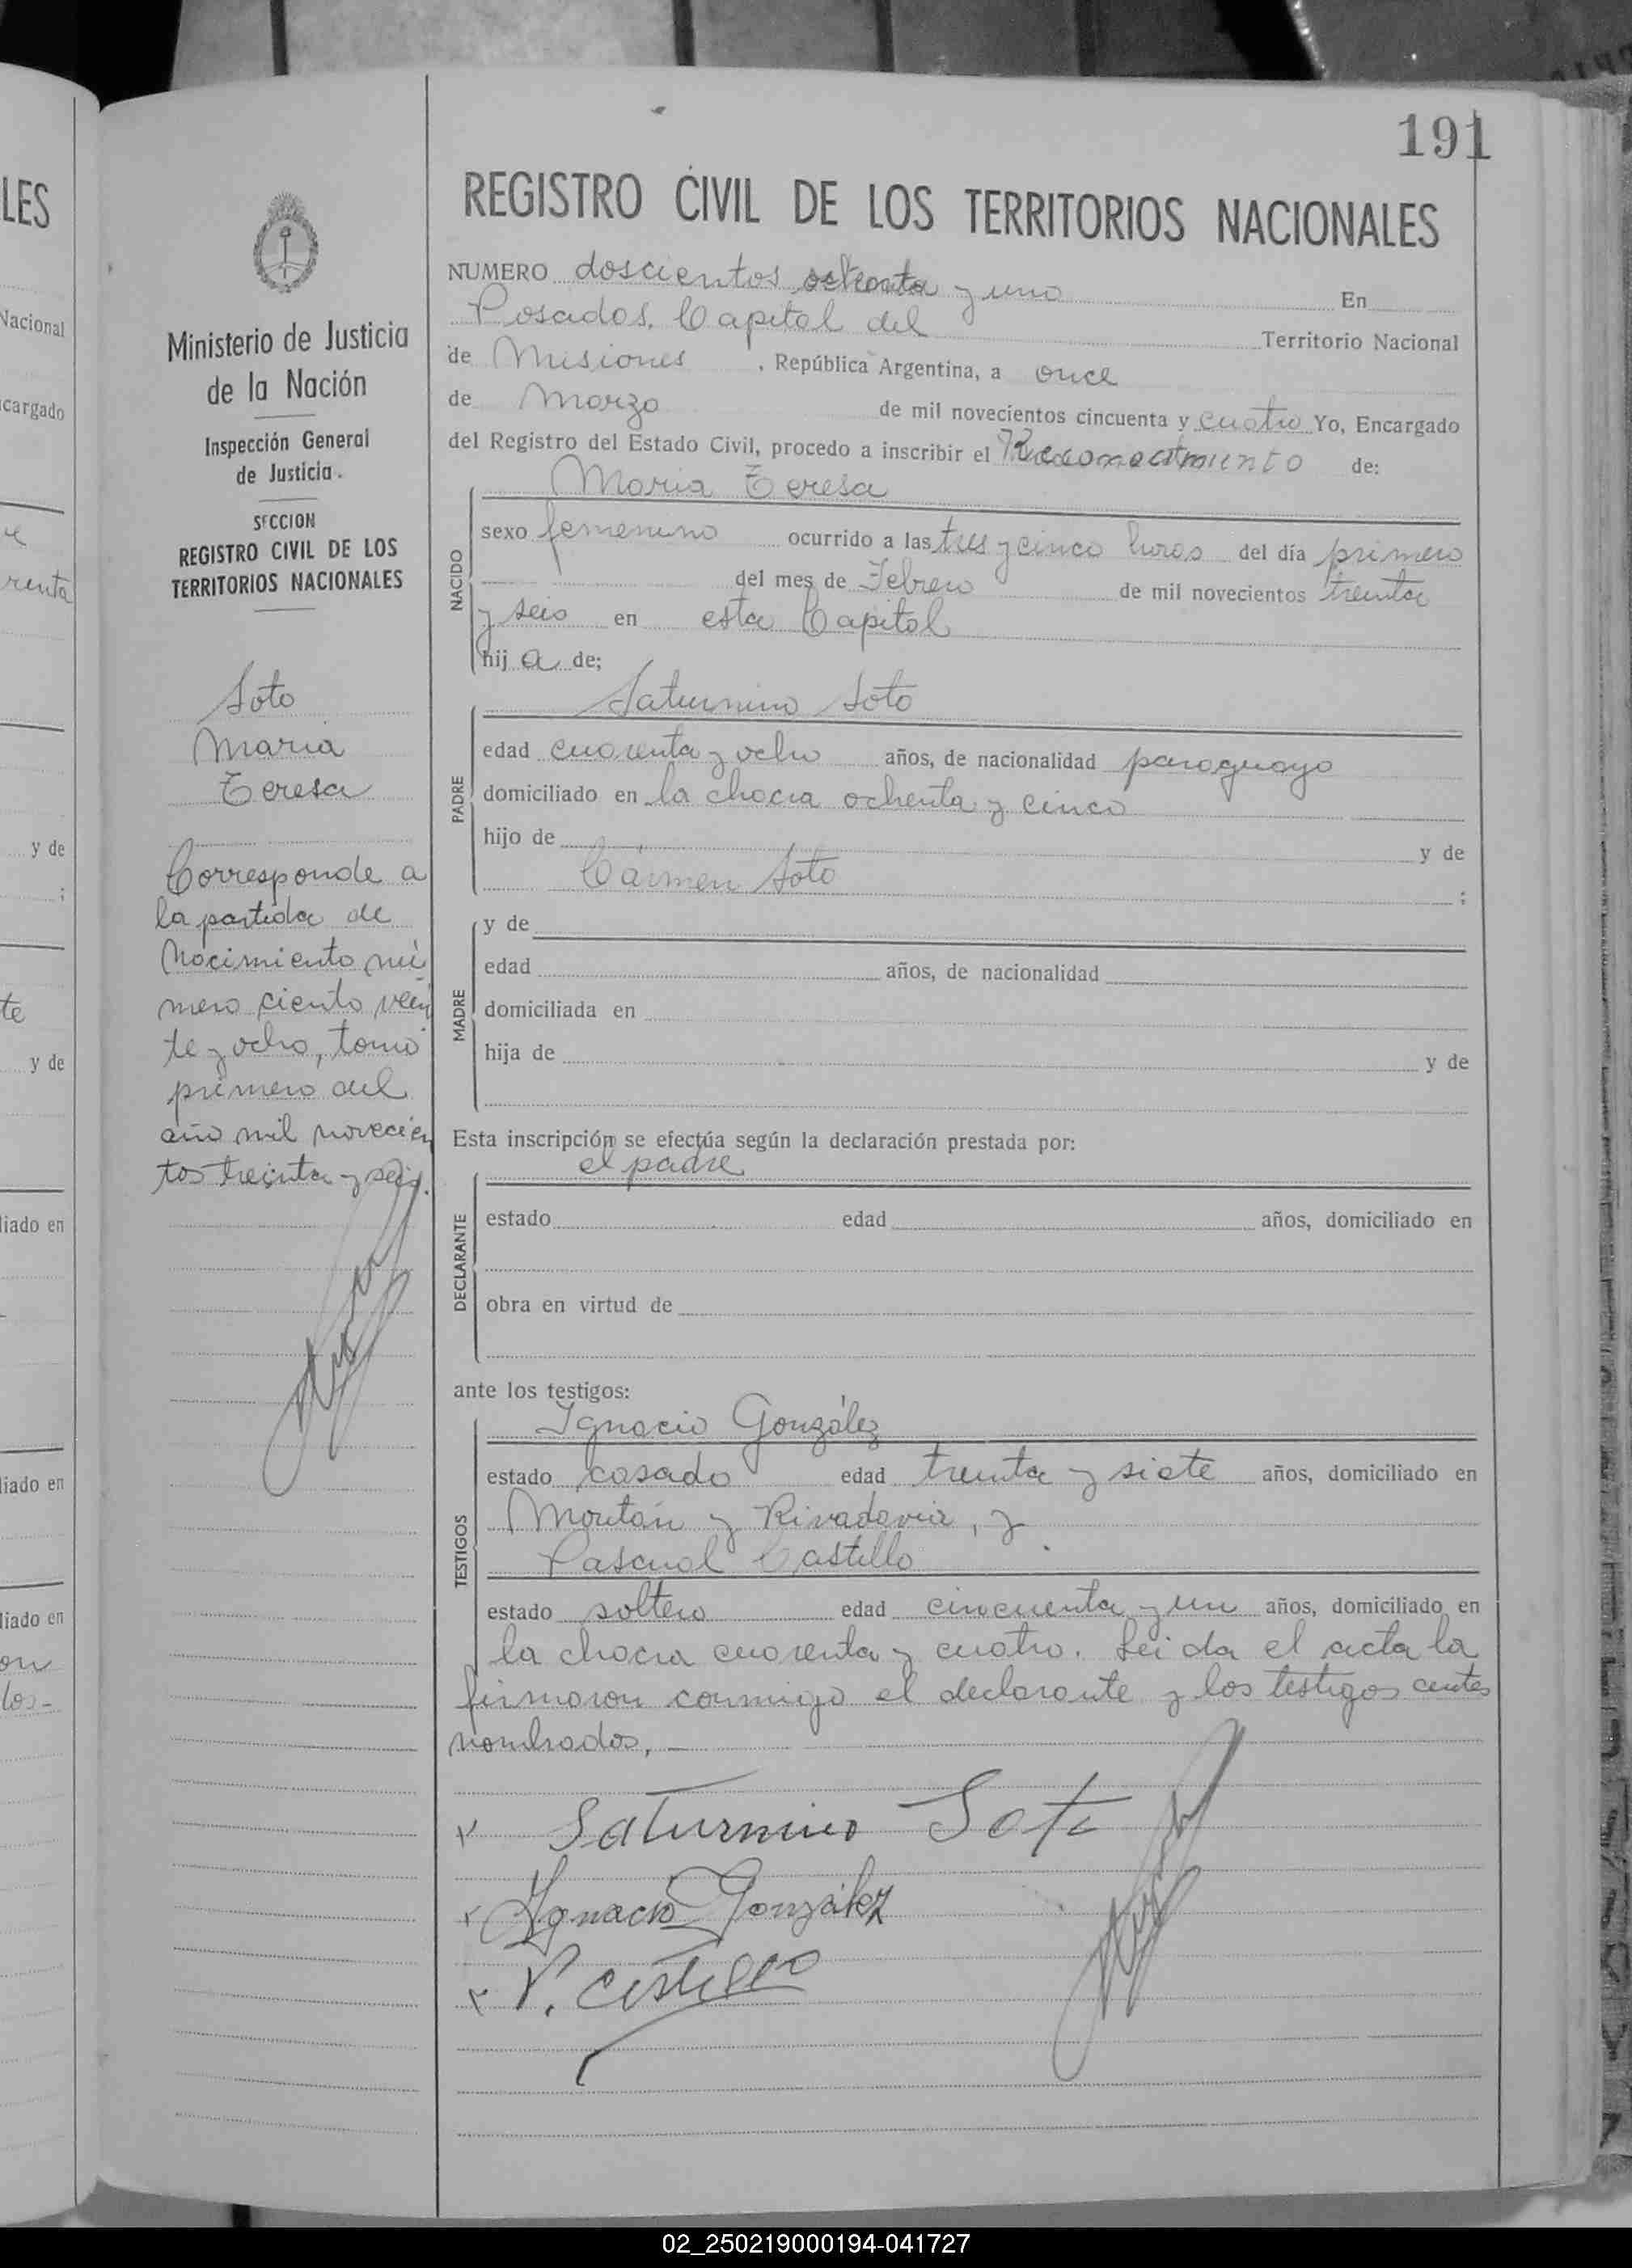 191
REGISTRO CIVIL DE LOS TERRITORIOS NACIONALES
NUMERO doscientos y uno En
Posadas, Capital del Territorio Nacional
de Misiones, República Argentina, a once
de Marzo de mil novecientos cincuenta y cuatro Yo, Encargado
del Registro del Estado Civil, procedo a inscribir el Reconocimiento de:
María Teresa
NACIDO
sexo femenino ocurrido a las tres y cinco horas del día primero
del mes de Febrero de mil novecientos treinta
y seis en esta Capital
hija de;
Saturnino Soto
PADRE
edad cuarenta y ocho años, de nacionalidad paraguayo
domiciliado en la chacra ochenta y cinco
hijo de y de
Cármen Soto ;
MADRE
y de
edad años, de nacionalidad
domiciliada en
hija de y de
Esta inscripción se efectúa según la declaración prestada por:
el padre
DECLARANTE
estado edad años, domiciliado en
obra en virtud de
ante los testigos:
TESTIGOS
Ignacio González
estado casado edad treinta y siete años, domiciliado en
y Rivadavia, y
Pascual Castillo
estado soltero edad cincuenta y un años, domiciliado en
la chacra cuarenta y cuatro. Leida el acta la
firmaron conmigo el declarante y los testigos antes
nombrados.
Saturnino Soto
Ignacio González
P. Castillo
Ministerio de Justicia
de la Nación
Inspección General
de Justicia.
SECCION
REGISTRO CIVIL DE LOS
TERRITORIOS NACIONALES
Soto
María
Teresa
Corresponde a
la partida de
Nacimiento nú
mero ciento vein
te y ocho, tomo
primero del
año mil novecien
tos treinta y seis.
LES
Nacional
cargado
renta
y de
;
te
y de
liado en
liado en
liado en
on
los-
02_250219000194-041727